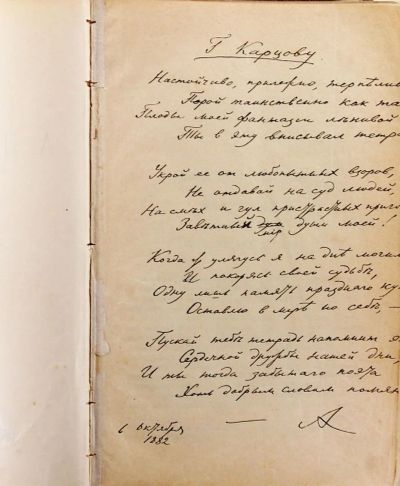 Г Карцову
Настойчиво, прилежно, терпѣлив
Порой таинственно как та
Плоды моей фантазіи лѣнивой
Ты в эту вписывал тетра
Укрой ее от любопытных взоров,
Не отдавай на суд людей,
На смѣх и гул пристрастных приго
Завѣтный мір души моей!
Когда ж улягусь я на днѣ могил
И покорясь своей судьбѣ,
Одну лишь память праздного ку
Оставлю в мірѣ по себѣ, —
Пускай тебѣ тетрадь напомнит э
Сердечной дружбы нашей дни,
И ты тогда забытаго поэта
Хоть добрым словом помян
6 октября
1882
— А